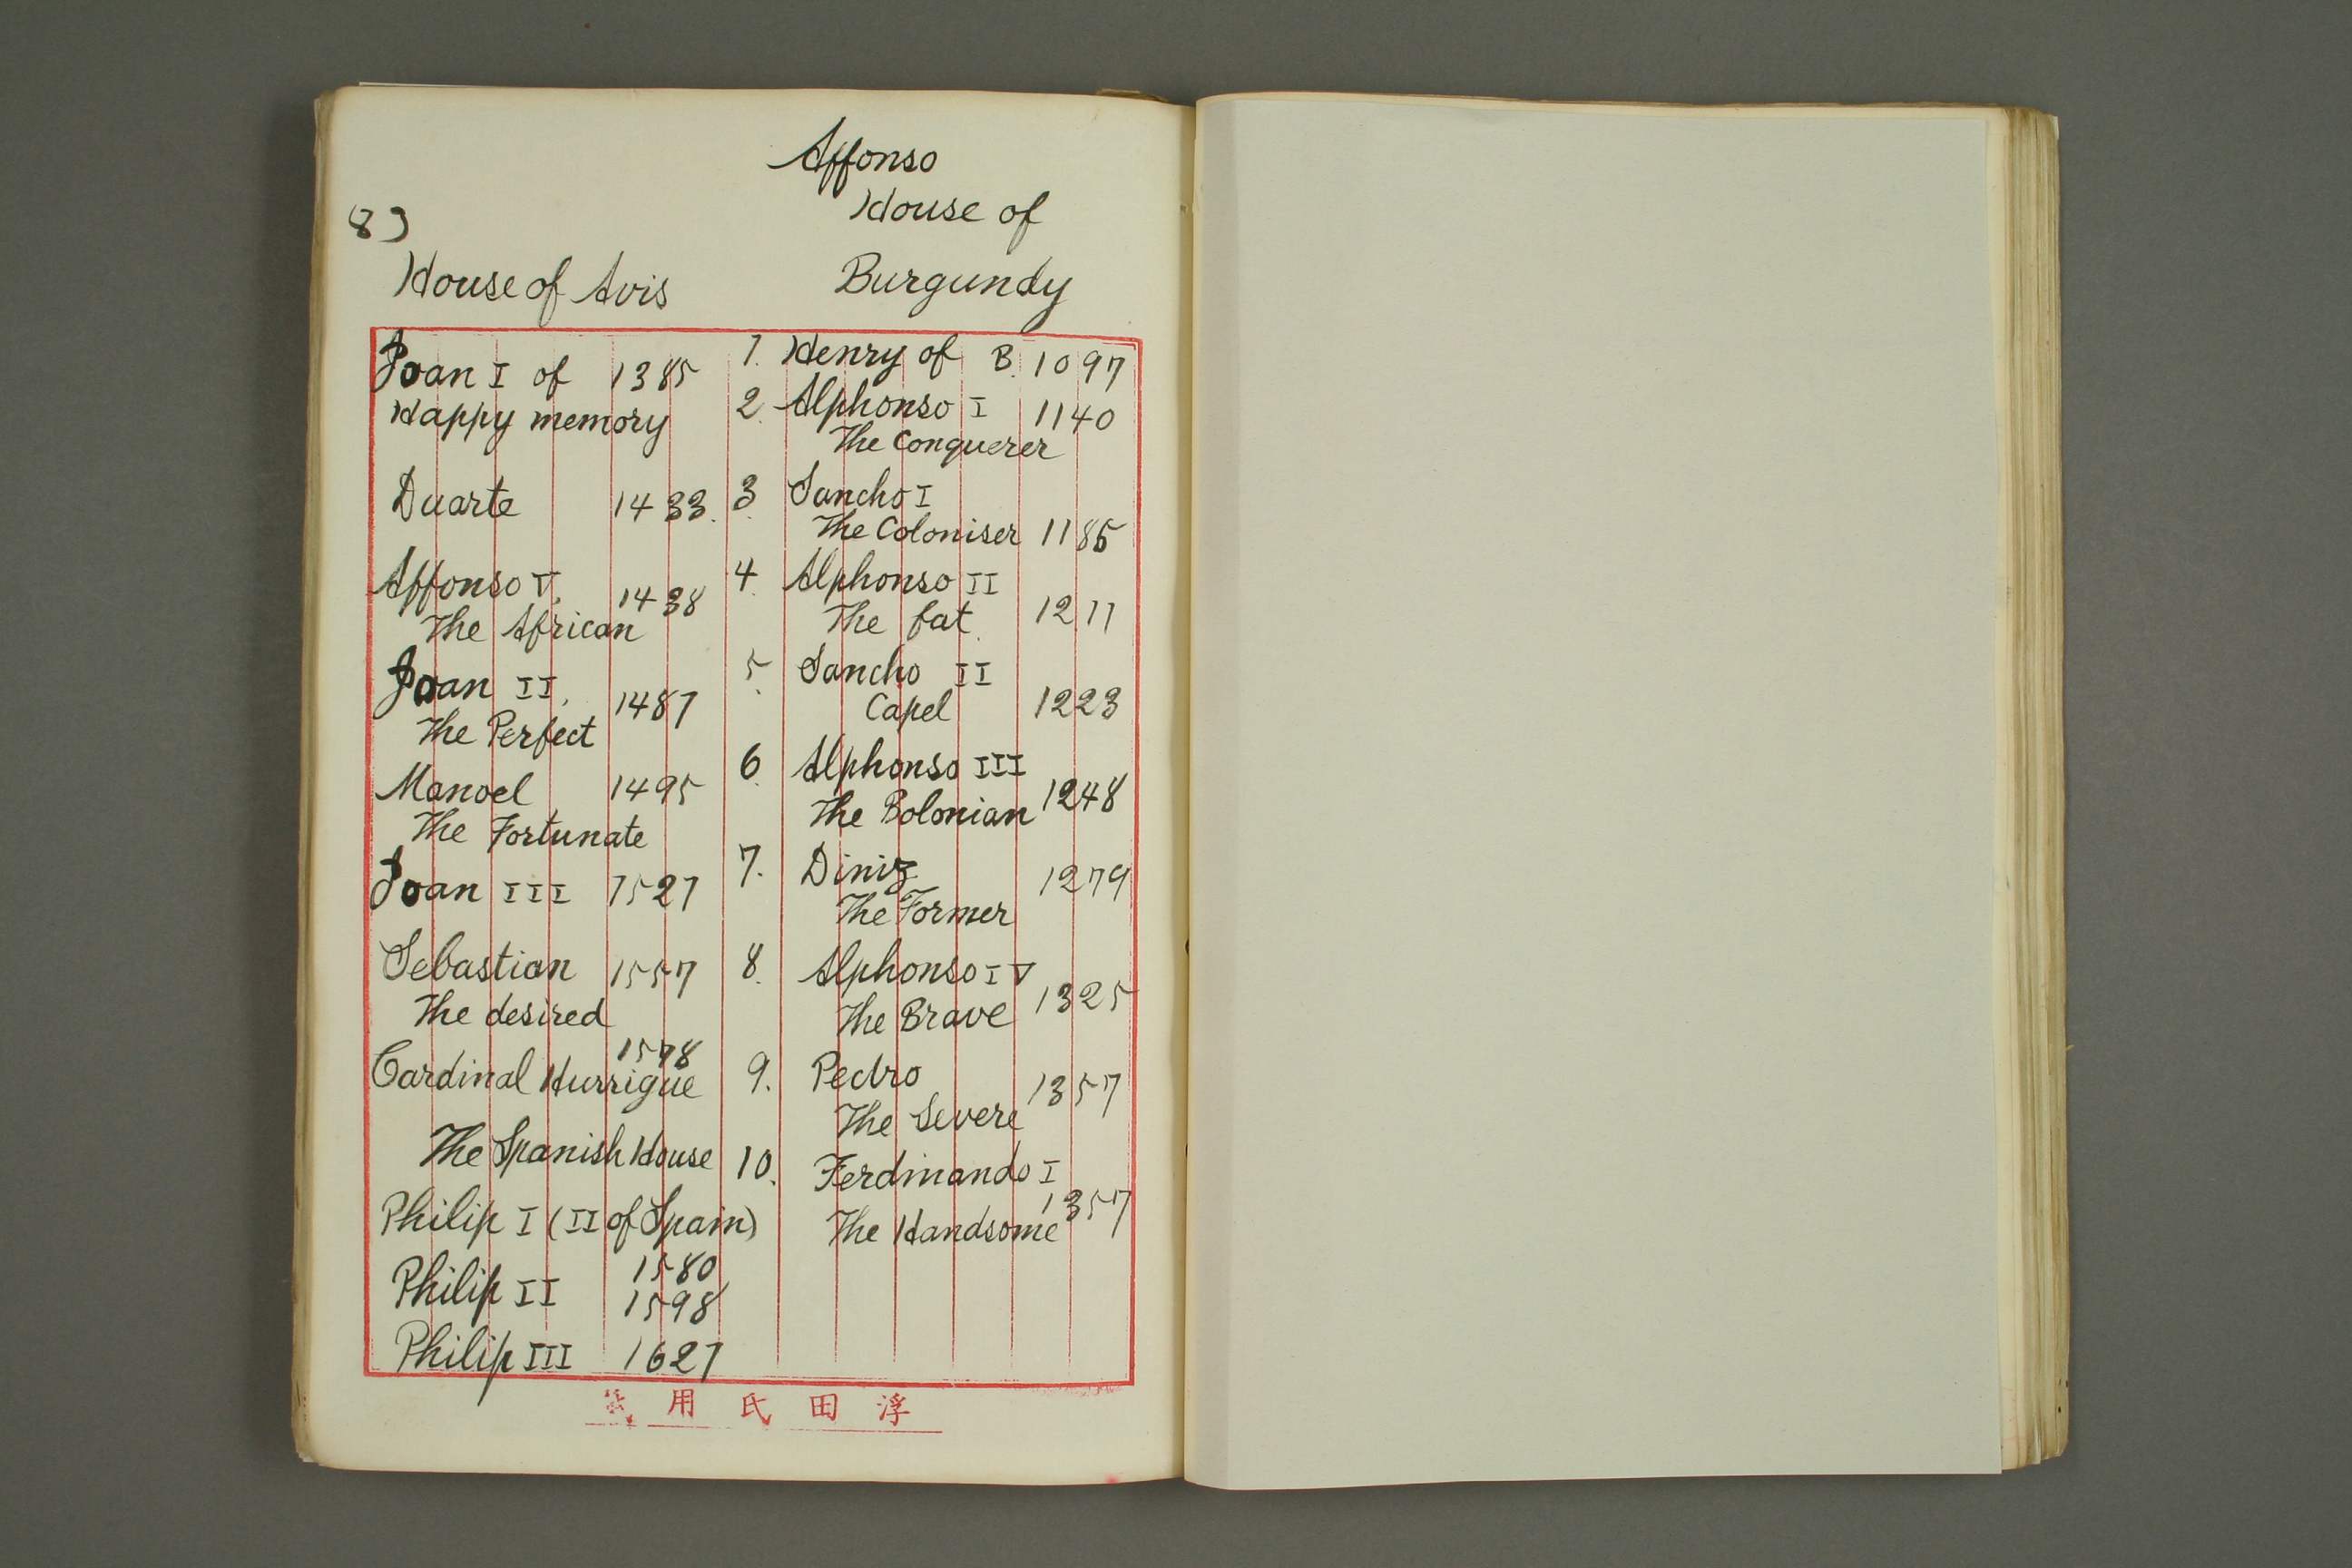 Affonso
House of
Burgundy
1. Henry of B. 1097
2. Alphonso I 1140
The Conquerer
3. Sancho I
The Coloniser 1185
4. Alphonso II
The fat 1211
5. Sancho II
Capel 1223
6. Alphonso III
The Bolonian 1248
7. Diniz 1279
The Former
8. Alphonso IV
The Brave 1325
9. Pedro
The Severe 1357
10. Ferdinando I
The Handsome 1357
83
House of Avis
Joan I of 1385
Happy memory
Duarte 1433.
Affonso V. 1438
The African
Joan II. 1487
The Perfect
Manoel 1495
The Fortunate
Joan III 1527
Sebastian 1557
The desired
1578
Cardinal Hurrigue
The Spanish House
Philip I (II of Spain)
1580
Philip II 1598
Philip III 1627
浮田氏用